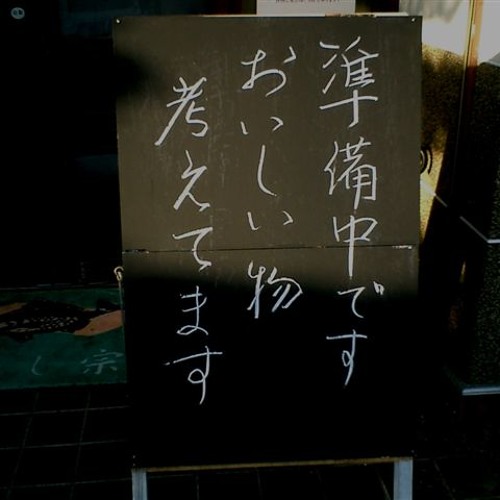 準備中です
おいしい物
考えてます
し 宗